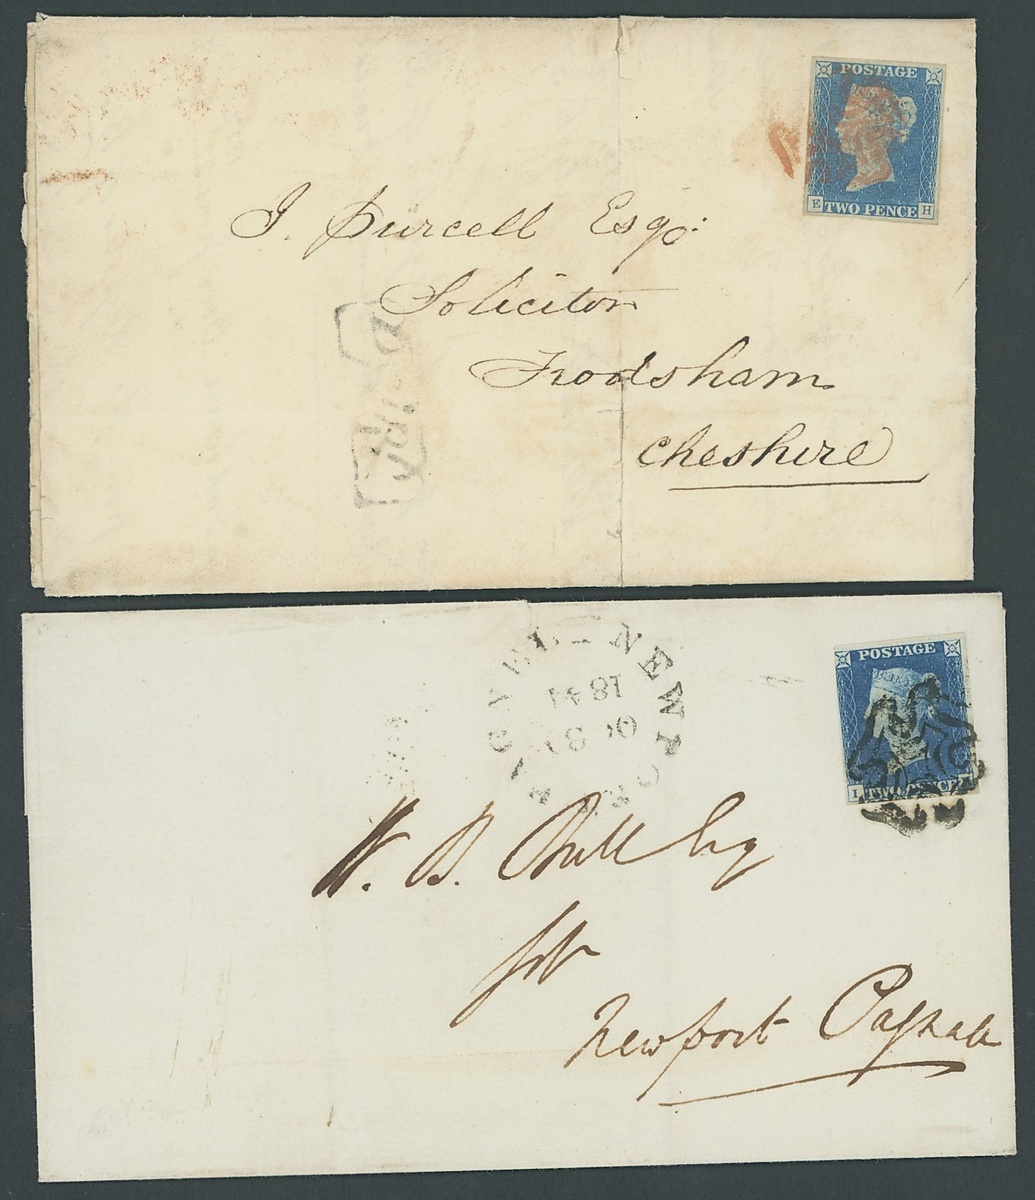 POSTAGE
TWO PENCE
E H
J. Purcell Esqr:
Solicitor
Frodsham
Cheshire
POSTAGE
I TWO PENCE
NEWPORT-PAGNELL
OC 3
1841
W. B. Bull Esq
Newport Pagnell